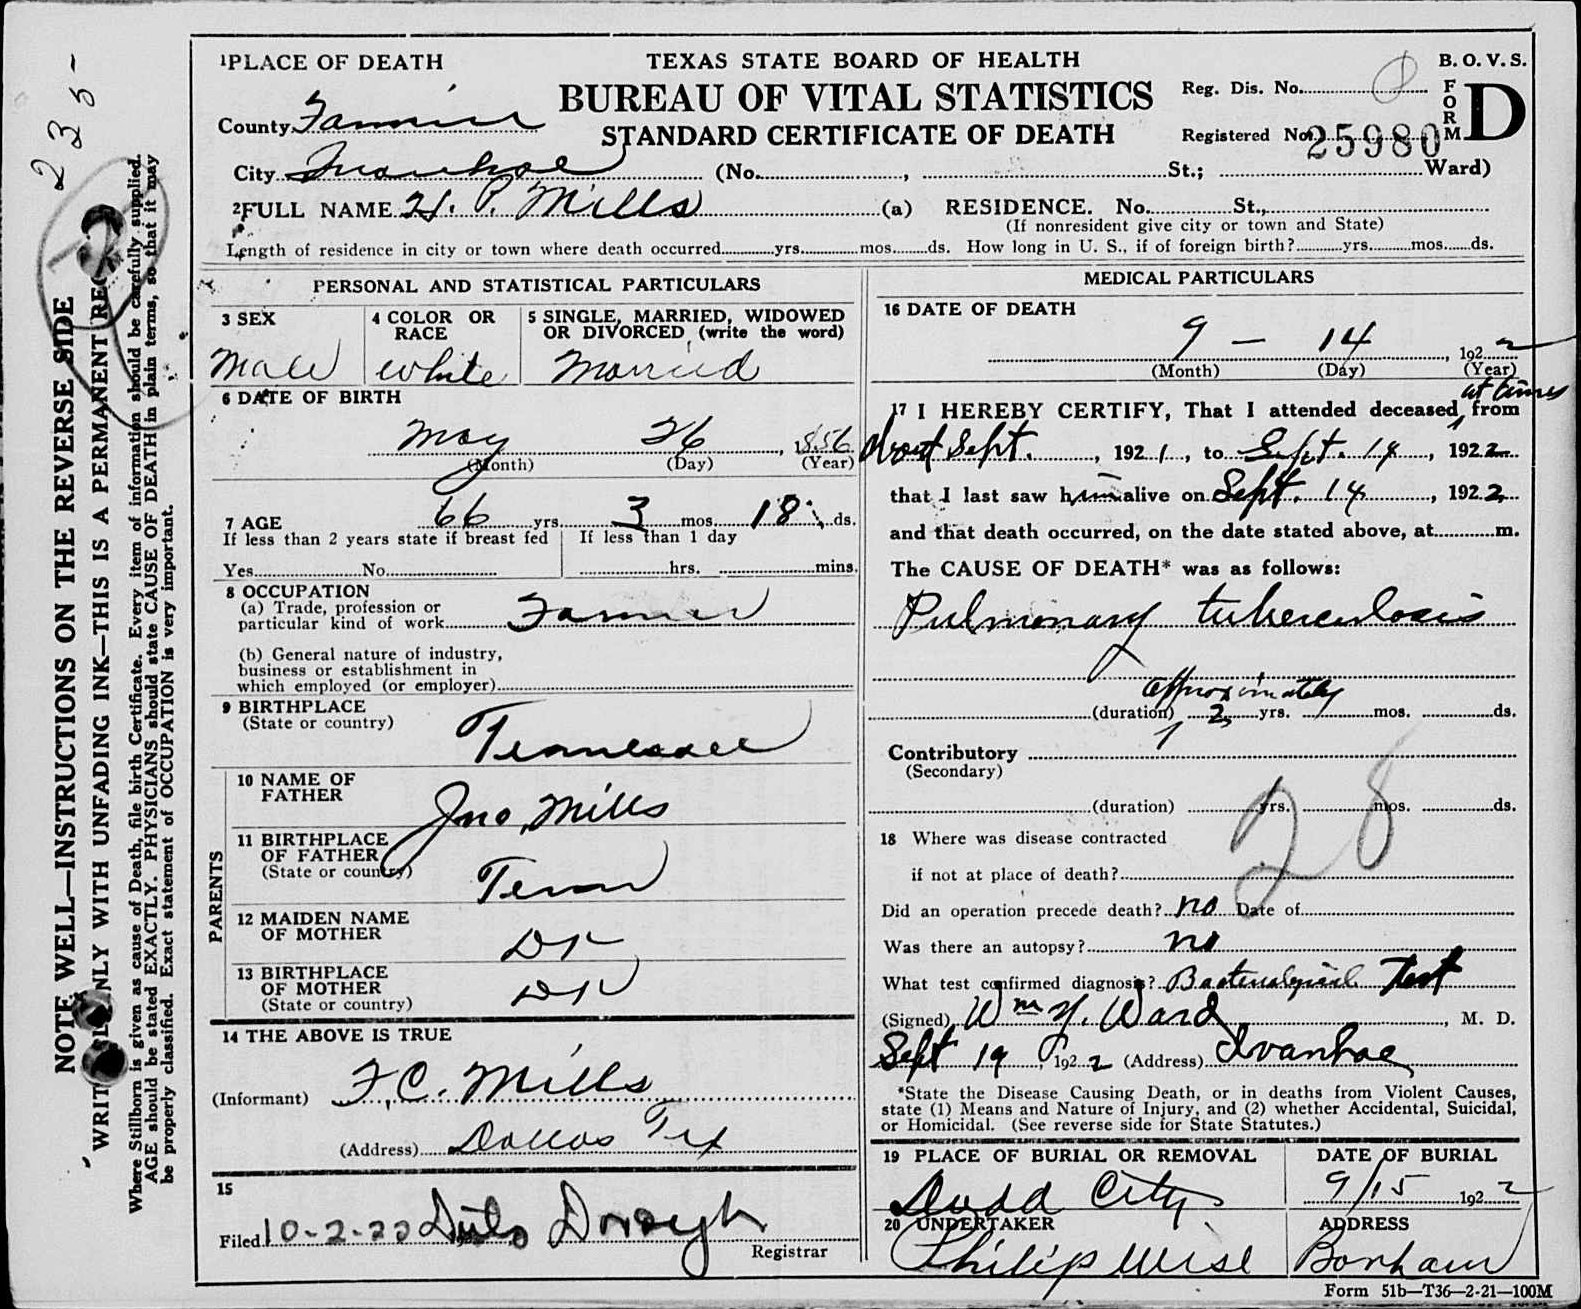 235-
NOTE WELL—INSTRUCTIONS ON THE REVERSE SIDE
WRITE ONLY WITH UNFADING INK—THIS IS A PERMANENT REC
Where Stillborn is given as cause of Death, file birth Certificate. Every item of information should be carefully supplied.
AGE should be stated EXACTLY. PHYSICIANS should state CAUSE OF DEATH in plain terms, so that it may
be properly classified. Exact statement of OCCUPATION is very important.
1 PLACE OF DEATH
TEXAS STATE BOARD OF HEALTH
B. O. V. S.
BUREAU OF VITAL STATISTICS
STANDARD CERTIFICATE OF DEATH
Reg. Dis. No.
FORM D
Registered No. 25980
County Fannin
City Ivanhoe (No. , St.; Ward)
2 FULL NAME H. P. Mills (a) RESIDENCE. No. St.,
(If nonresident give city or town and State)
Length of residence in city or town where death occurred yrs. mos. ds. How long in U. S., if of foreign birth? yrs. mos. ds.
PERSONAL AND STATISTICAL PARTICULARS
3 SEX
Male
4 COLOR OR RACE
White
5 SINGLE, MARRIED, WIDOWED OR DIVORCED (write the word)
Married
6 DATE OF BIRTH
May 26, 1856
(Month) (Day) (Year)
7 AGE 66 yrs. 3 mos. 18 ds.
If less than 2 years state if breast fed If less than 1 day
Yes No hrs. mins.
8 OCCUPATION
(a) Trade, profession or
particular kind of work Farmer
(b) General nature of industry,
business or establishment in
which employed (or employer)
9 BIRTHPLACE
(State or country) Tennessee
PARENTS
10 NAME OF FATHER Jno. Mills
11 BIRTHPLACE OF FATHER
(State or country) Tenn
12 MAIDEN NAME OF MOTHER DK
13 BIRTHPLACE OF MOTHER
(State or country) DK
14 THE ABOVE IS TRUE
(Informant) F. C. Mills
(Address) Dallas Tex
15
Filed 10-2-22 Dorough
Registrar
MEDICAL PARTICULARS
16 DATE OF DEATH
9 - 14, 1922
(Month) (Day) (Year)
17 I HEREBY CERTIFY, That I attended deceased at times from
about Sept., 1921, to Sept. 14, 1922
that I last saw him alive on Sept. 14, 1922
and that death occurred, on the date stated above, at m.
The CAUSE OF DEATH* was as follows:
Pulmonary tuberculosis
approximately
(duration) 2 yrs. mos. ds.
Contributory
(Secondary)
(duration) yrs. mos. ds.
28
18 Where was disease contracted
if not at place of death?
Did an operation precede death? no Date of
Was there an autopsy? no
What test confirmed diagnosis? Bacteriological Test
(Signed) Wm Y. Ward, M. D.
Sept 19, 1922 (Address) Ivanhoe
*State the Disease Causing Death, or in deaths from Violent Causes,
state (1) Means and Nature of Injury, and (2) whether Accidental, Suicidal,
or Homicidal. (See reverse side for State Statutes.)
19 PLACE OF BURIAL OR REMOVAL
Dodd City
DATE OF BURIAL
9/15 1922
20 UNDERTAKER
Philip Wise
ADDRESS
Bonham
Form 51b—T36—2-21—100M